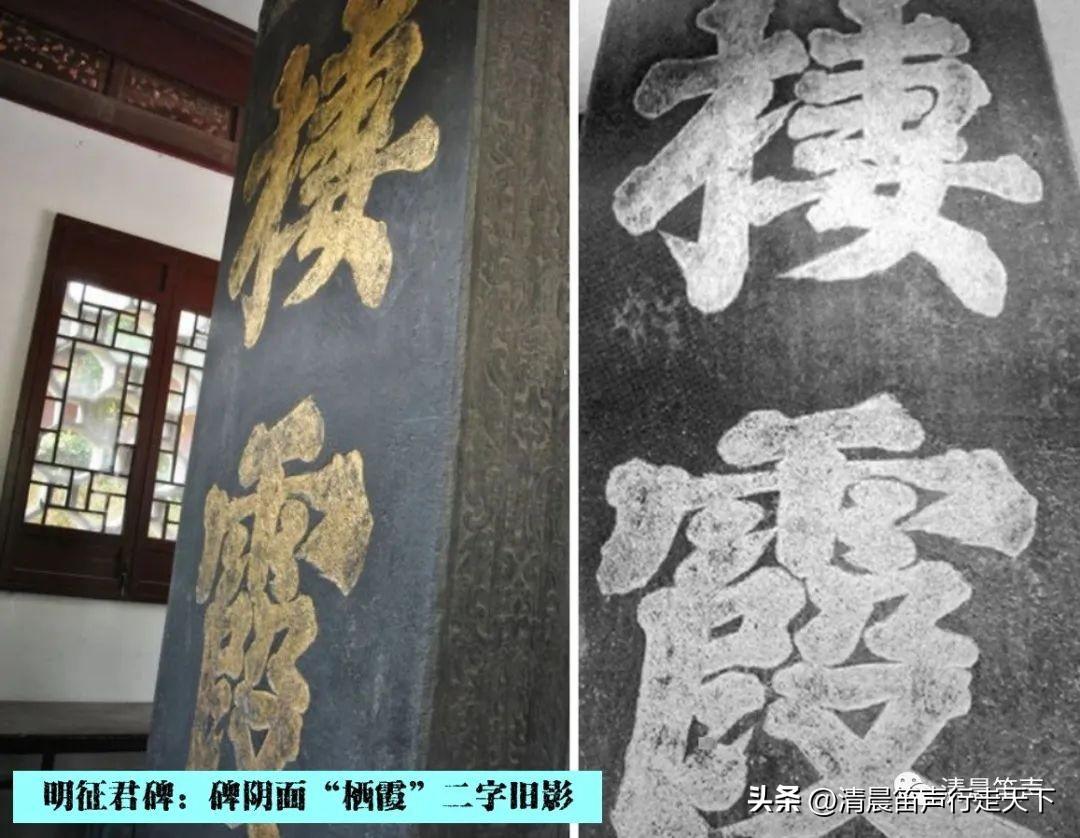 棲霞
棲霞
明征君碑：碑阴面“栖霞”二字旧影
清晨笛声
头条 @清晨笛声行走天下